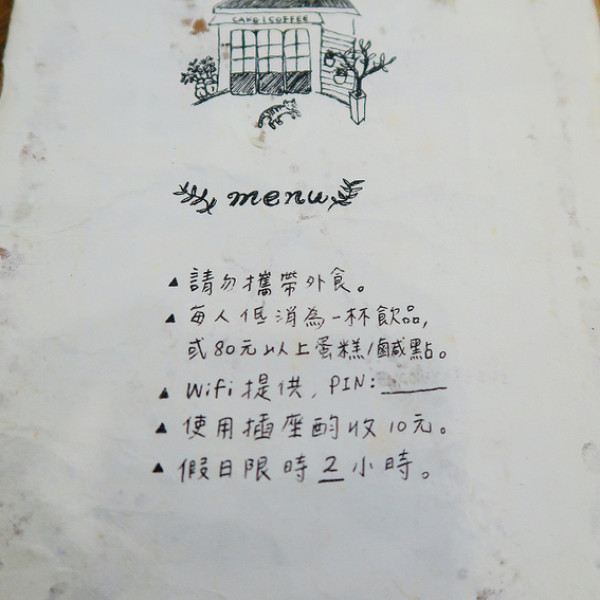 CAFE COFFEE
menu
▲ 請勿攜帶外食。
▲ 每人低消為一杯飲品,
或80元以上蛋糕/鹹點。
▲ Wifi 提供, PIN:______
▲ 使用插座酌收10元。
▲ 假日限時 2 小時。